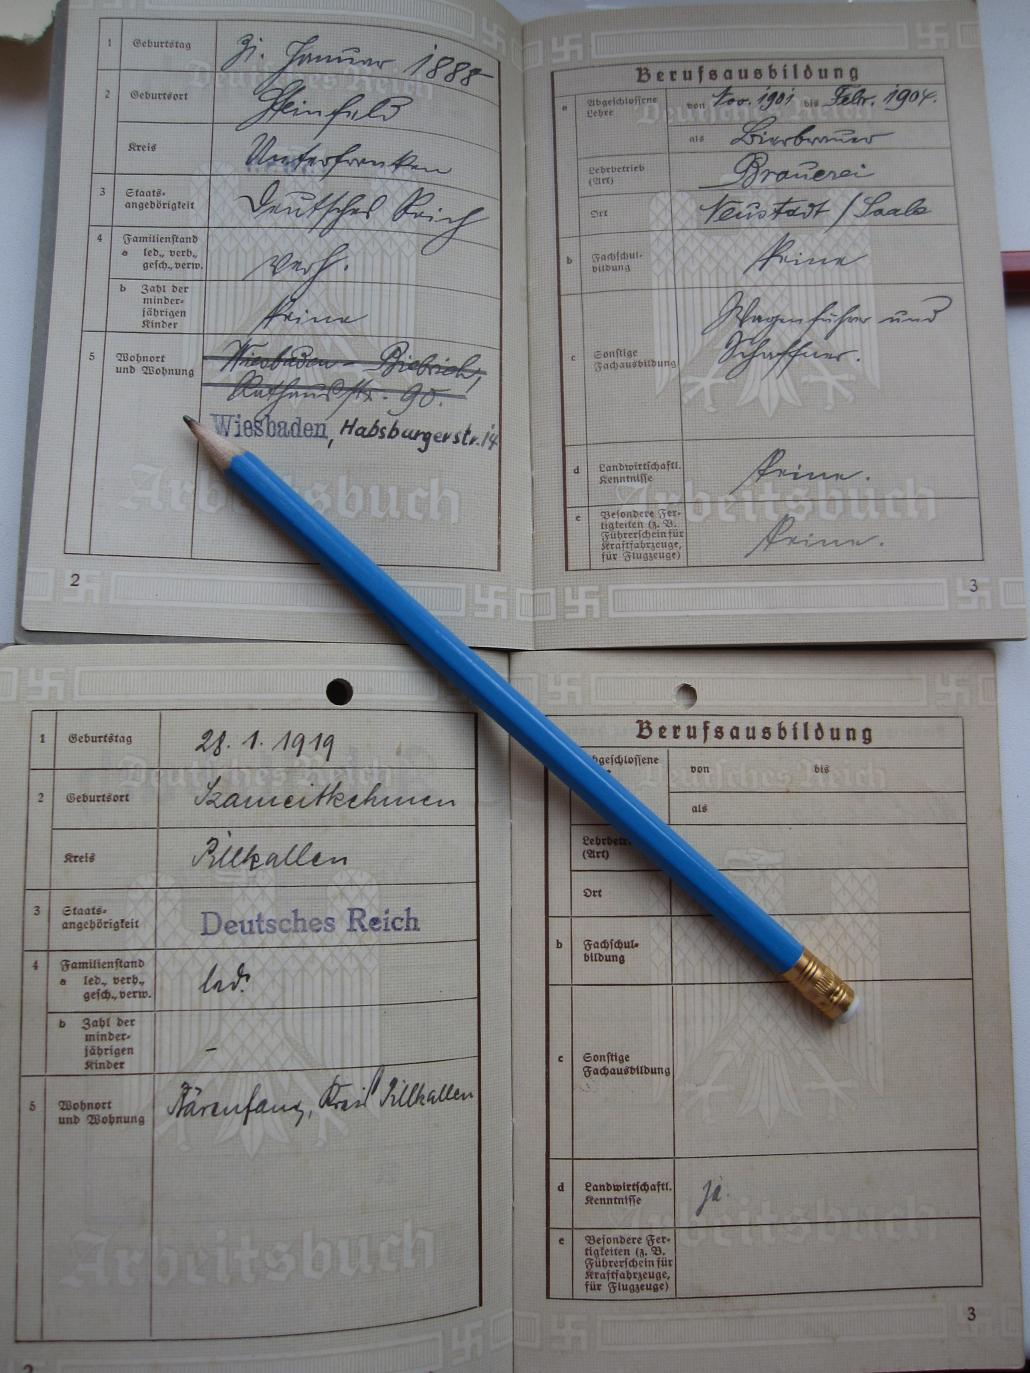 1 Geburtstag 31. Januar 1888
2 Geburtsort
Kreis Unterfranken
3 Staats-
angehörigkeit Deutsches Reich
4 Familienstand
a led., verh.,
gesch., verw. verh.
b Zahl der
minder-
jährigen
Kinder keine
5 Wohnort
und Wohnung Wiesbaden - Biebrich,
Rathausstr. 90.
Wiesbaden, Habsburgerstr. 14
Deutsches Reich
Arbeitsbuch
2
Berufsausbildung
a Abgeschlossene
Lehre von Nov. 1901 bis Febr. 1904.
als Bierbrauer
Lehrbetrieb
(Art) Brauerei
Ort Neustadt / Saale
b Fachschul-
bildung keine
c Sonstige
Fachausbildung Wagenführer und
Schaffner.
d Landwirtschaftl.
Kenntnisse keine.
e Besondere Fer-
tigkeiten (z. B.
Führerschein für
Kraftfahrzeuge,
für Flugzeuge) keine.
Deutsches Reich
Arbeitsbuch
3
1 Geburtstag 28. 1. 1919
2 Geburtsort Szameitkehmen
Kreis Pillkallen
3 Staats-
angehörigkeit Deutsches Reich
4 Familienstand
a led., verh.,
gesch., verw. led.
b Zahl der
minder-
jährigen
Kinder –
5 Wohnort
und Wohnung Bärenfang, Kreis Pillkallen
Deutsches Reich
Arbeitsbuch
2
Berufsausbildung
Abgeschlossene
von bis
als
Lehrbetr
(Art)
Ort
b Fachschul-
bildung
c Sonstige
Fachausbildung
d Landwirtschaftl.
Kenntnisse ja.
e Besondere Fer-
tigkeiten (z. B.
Führerschein für
Kraftfahrzeuge,
für Flugzeuge)
Deutsches Reich
Arbeitsbuch
3